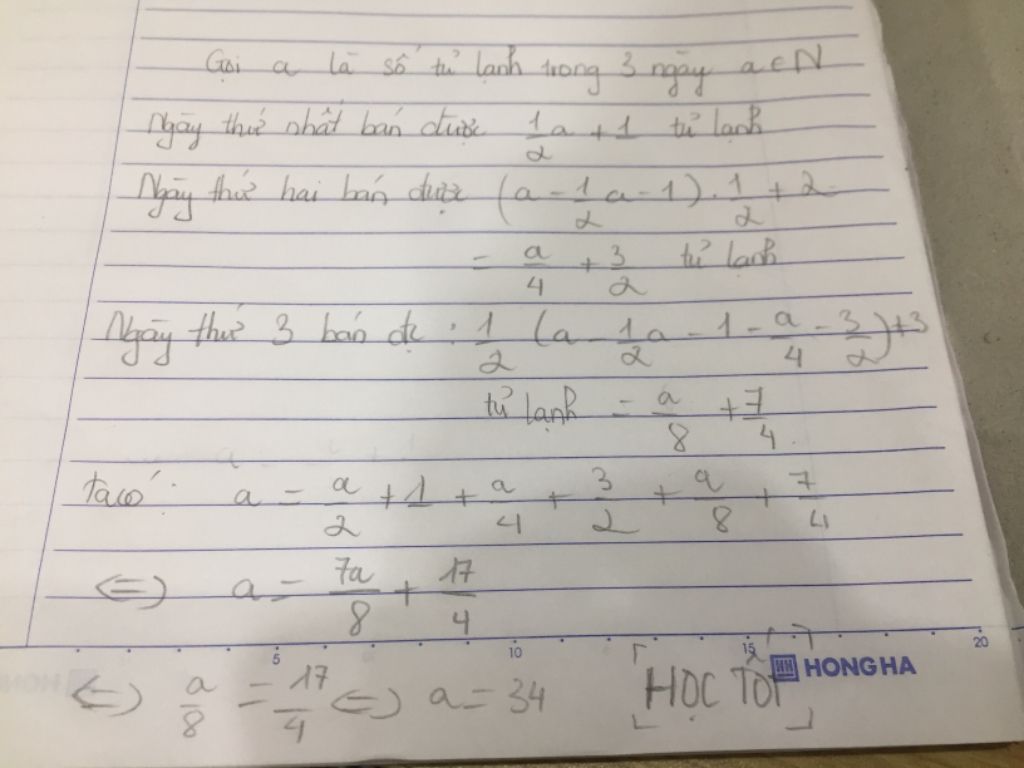 Gọi a là số tủ lạnh trong 3 ngày a ∈ N
Ngày thứ nhất bán được 1/2 a + 1 tủ lạnh
Ngày thứ hai bán được (a - 1/2 a - 1) . 1/2 + 2
= a/4 + 3/2 tủ lạnh
Ngày thứ 3 bán đc : 1/2 (a - 1/2 a - 1 - a/4 - 3/2) + 3
tủ lạnh = a/8 + 7/4
ta có : a = a/2 + 1 + a/4 + 3/2 + a/8 + 7/4
<=> a = 7a/8 + 17/4
5 10 15 20
HONG HA
<=> a/8 = 17/4 <=> a = 34 [HỌC TỐT]